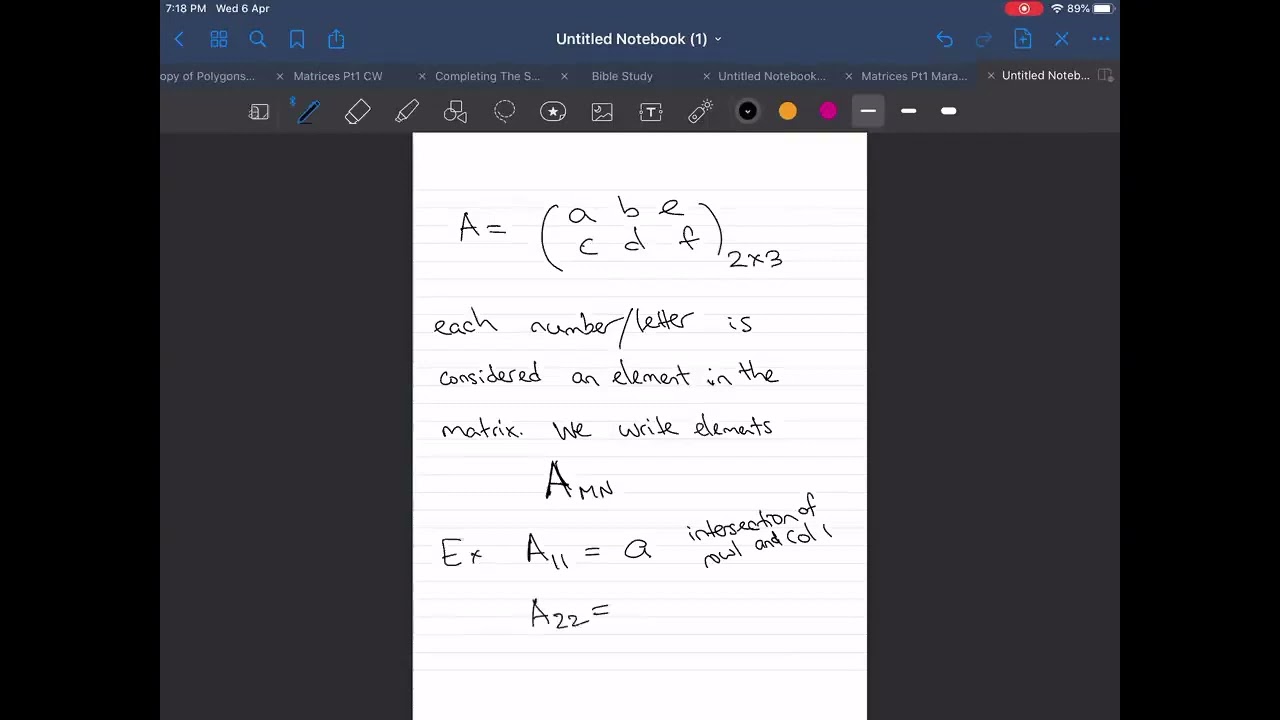 7:18 PM Wed 6 Apr
89%
Untitled Notebook (1)
opy of Polygons...
Matrices Pt1 CW
Completing The S...
Bible Study
Untitled Notebook...
Matrices Pt1 Mara...
Untitled Noteb...
A = ( a b e
c d f ) 2×3
each number/letter is
considered an element in the
matrix. We write elements
A MN
Ex A 11 = a intersection of
row 1 and col 1
A 22 =